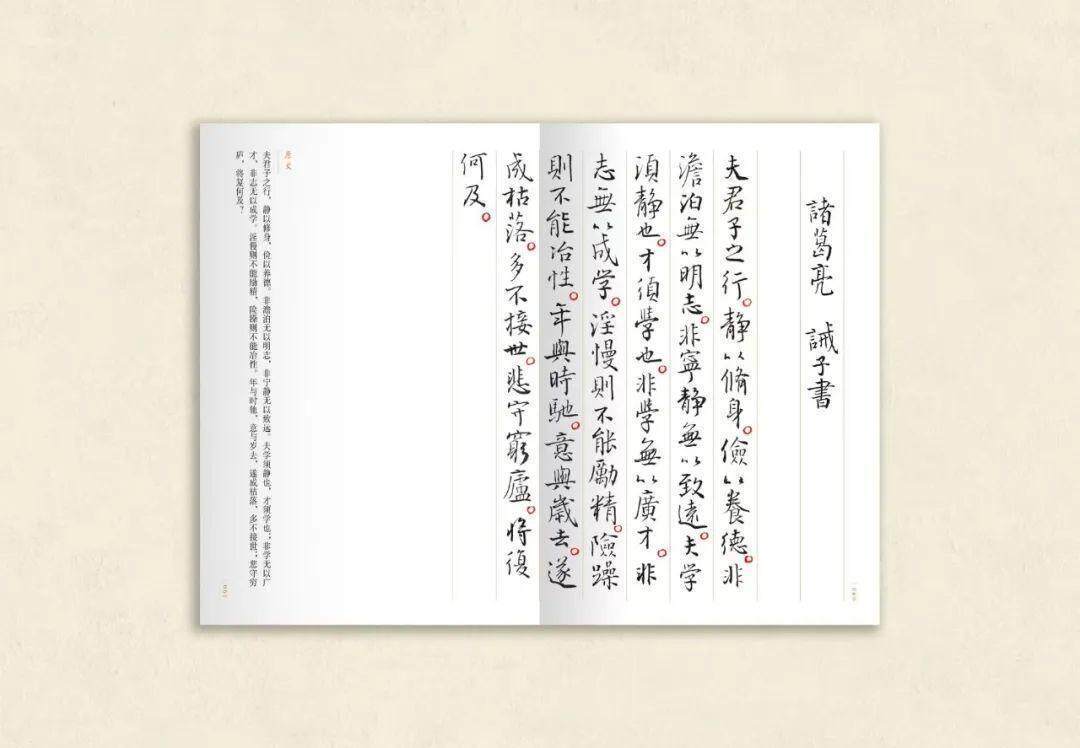 諸葛亮 誡子書
夫君子之行。静以脩身。儉以養德。非
澹泊無以明志。非寧静無以致遠。夫学
湏静也。才湏學也。非學無以廣才。非
志無以成学。淫慢則不能勵精。險躁
則不能冶性。年與時馳。意與歲去。遂
成枯落。多不接世。悲守窮廬。将復
何及。
原文
夫君子之行，静以修身，俭以养德。非澹泊无以明志，非宁静无以致远。夫学须静也，才须学也；非学无以广
才，非志无以成学。淫慢则不能励精，险躁则不能治性。年与时驰，意与岁去，遂成枯落，多不接世；悲守穷
庐，将复何及？